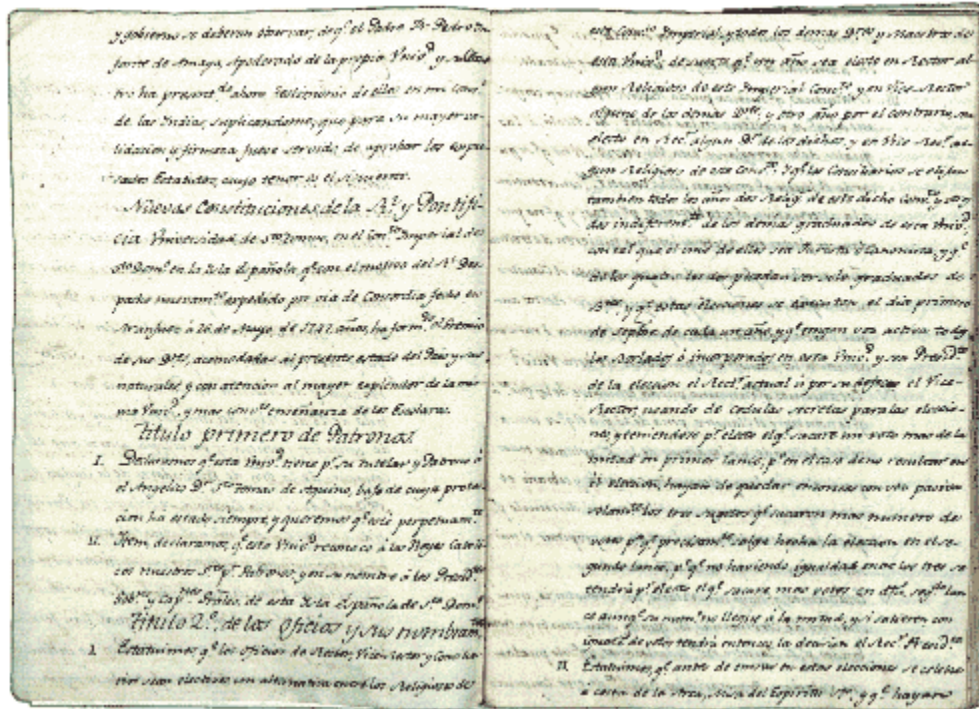 y gobierno se deberan observar, de q.e el Padre Fr. Pedro In
fante de Amaya, Apoderado de la propia Vniv.d y
tro ha present.do ahora testimonio de ellas en mi Cons.o
de las Indias, suplicandome, que para su mayor va
lidacion y firmeza fuese servido de aprobar los expre
sados Estatutos, cuyo tenor es el siguiente.
Nuevas Constituciones de la R.l y Pontifi-
cia Vniversidad de S.to Tomas, en el Con.to Imperial de
S.to Dom.o en la Isla Española, q.e con el motivo del R.l Des
pacho nuevam.te expedido por via de Concordia fecho en
Aranjuez à 26 de Mayo, de 1747 años, ha form.do el Gremio
de sus D.res, acomodadas al presente estado del Pais y sus
naturales, y con atencion al mayor explendor de la mis
ma Vniv.d, y mas enseñanza de los Escolares.
Titulo primero de Patronos
I. Declaramos q.e esta Vniv.d tiene p.r su tutelar y Patrono à
el Angelico D.r S.to Tomas de Aquino, bajo de cuya protec
cion ha estado siempre, y queremos q.e esté perpetuam.te
II. Item declaramos, q.e esta Vniv.d reconoce à los Reyes Catoli
cos nuestros S.res p.r Patronos, y en su nombre à los Presid.tes
Gob.res y Cap.nes Grales, de esta Isla Española de S.to Dom.o
Titulo 2.o de los oficios y sus nombram.tos
I. Estatuimos, q.e los oficios de Rector, Vice-Rector y Consilia
rios sean electivos con alternativa entre los Religiosos de
este Conv.to Imperial, y todos los demas D.res y Maestros de
esta Vniv.d de suerte q.e un año sea electo en Rector al
gun Religioso de este Imperial Conv.to y en Vice-Rector
alguno de los demas D.res, y otro año por el contrario, sea
electo en Rec.r algun D.r de los dichos, y en Vice Rec.r al
gun Religioso de ese Con.to. Y q.e los Consiliarios se elijan
tambien todos los años dos Relig.s de este dicho Conv.to y otros
dos indiferent.te de los demas graduados de esta Vniv.d
con tal que el uno de ellos sea Jurista ò Canonista, y q.e
de los quatro los dos puedan ser solo graduados de
B.res y q.e estas elecciones se executen, el dia primero
de Sepbre de cada un año, y q.e tengan voz activa todos
los Borlados ò incorporados en esta Vniv.d y sea Presid.te
de la eleccion el Rec.r actual ò por su defecto el Vice-
Rector, usando de cedulas secretas para las eleccio
nes, y teniendose p.r electo el q.e sacare un voto mas de la
mitad en primer lance, p.r en el caso de no resultar en
el eleccion, hayan de quedar entonces con voz pasiva
solam.te los tres sugetos q.e sacaron mas numero de
votos p.a q.e precisam.te salga hecha la eleccion en el se
gundo lance, p.s q.e no haviendo igualdad entre los tres se
tendrà p.r electo el q.e sacare mas votos en dho, seg.do lan
ce aunq.e su num.o no llegue à la mitad, y si salieren con
igualdad de votos tendrà entonces, la decision el Rec.r Presid.te
II. Estatuimos, q.e antes de entrar en estas elecciones se celebre
à costa de la Arca, Misa del Espiritu S.to, y q.e hayan